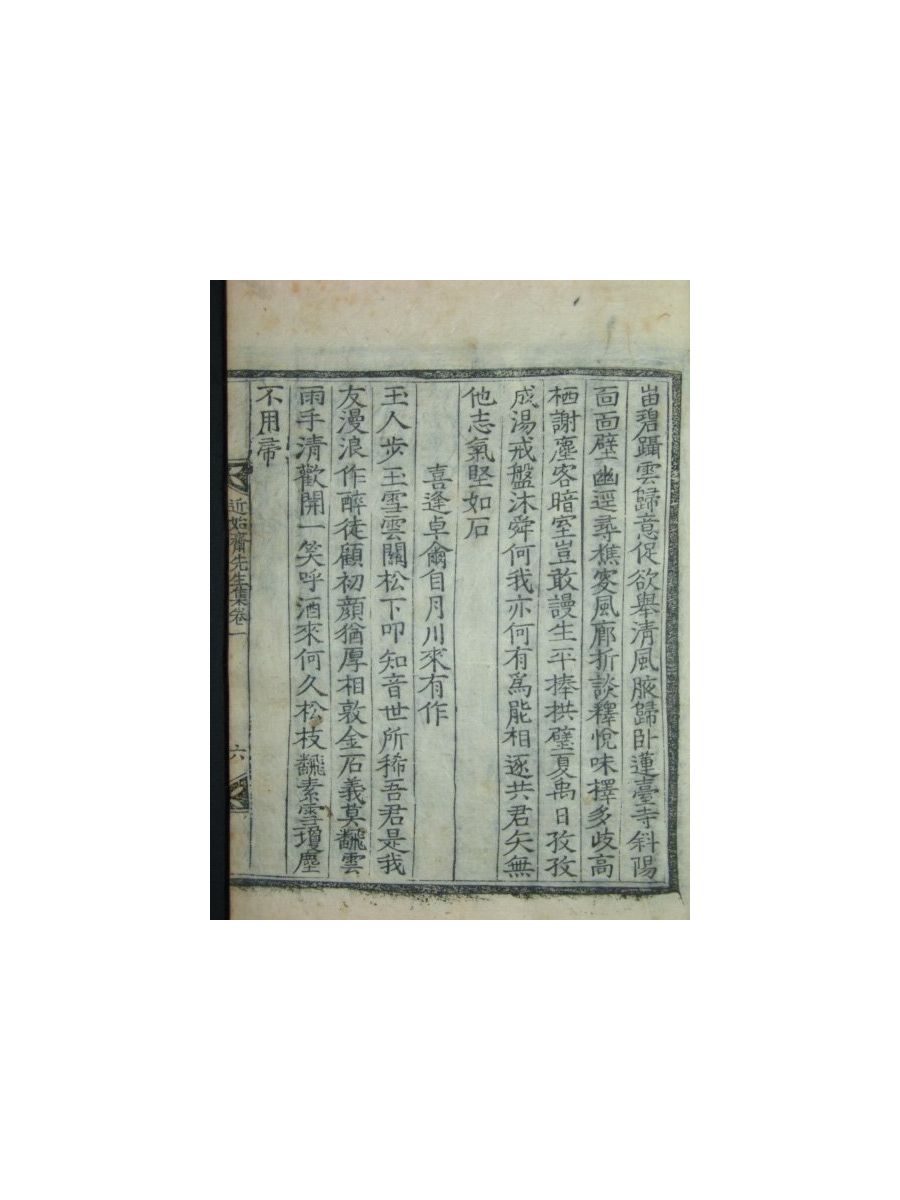 畄碧躡雲歸意促欲舉清風腋歸卧蓮臺寺斜陽
面面壁幽逕尋樵叟風廊折談釋悅味擇多歧高
栖謝塵客暗室豈敢謾生平捧拱璧夏禹日孜孜
成湯戒盤沐舜何我亦何有爲能相逐共君矢無
他志氣堅如石
喜逢卓爾自月川來有作
玉人步玉雪雲關松下叩知音世所稀吾君是我
友漫浪作醉徒顧初顔猶厚相敦金石義莫飜雲
雨手清歡開一笑呼酒來何久松枝飜素雪瓊塵
不用帚
近始齋先生集卷一
六